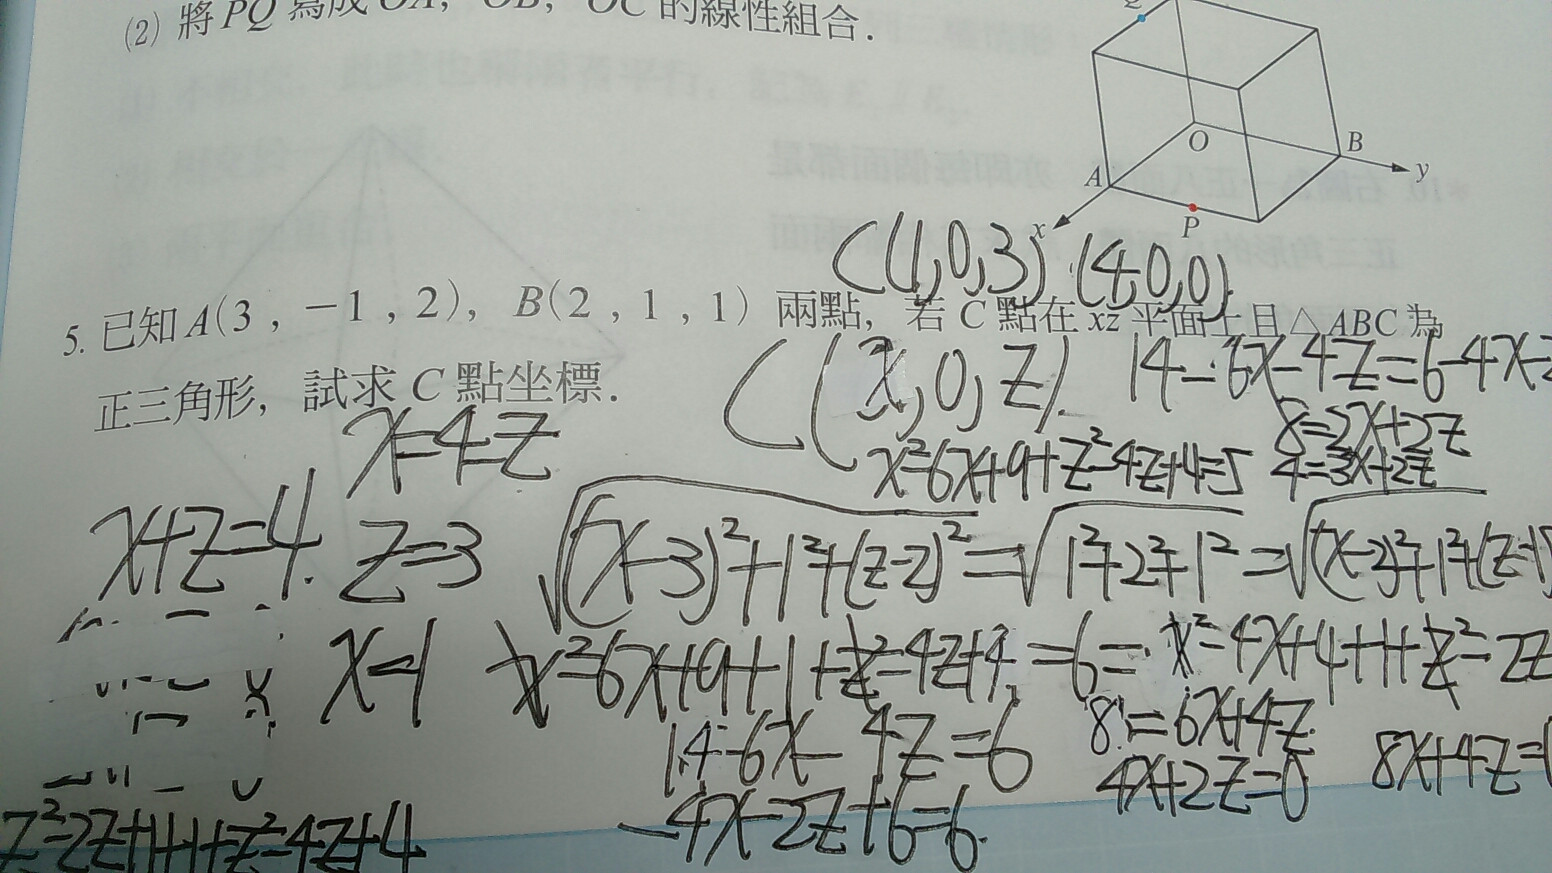 (2) 將 PQ 寫成 OA, OB, OC 的線性組合.
Q
O
A
B
y
x
P
C(1,0,3) (4,0,0)
5. 已知 A(3 , −1 , 2), B(2 , 1 , 1) 兩點, 若 C 點在 xz 平面上且△ABC 為
正三角形, 試求 C 點坐標.
C(x,0,z).
14-6x-4z=6-4x-2
8=2x+2z
4=3x+2z
x=4-z
x²-6x+9+z²-4z+4=5
x+z=4.
z=3
√(x-3)²+1²+(z-2)² =√1²+2²+1² =√(x-2)²+1²+(z-1)
x=1
x²-6x+9+1+z²-4z+4=6= x²-4x+4+1+z²-2z
14-6x-4z=6
8=6x+4z
8x+4z=
4x+2z=0
-4x-2z+6=6.
z²-2z+1+1+z²-4z+4